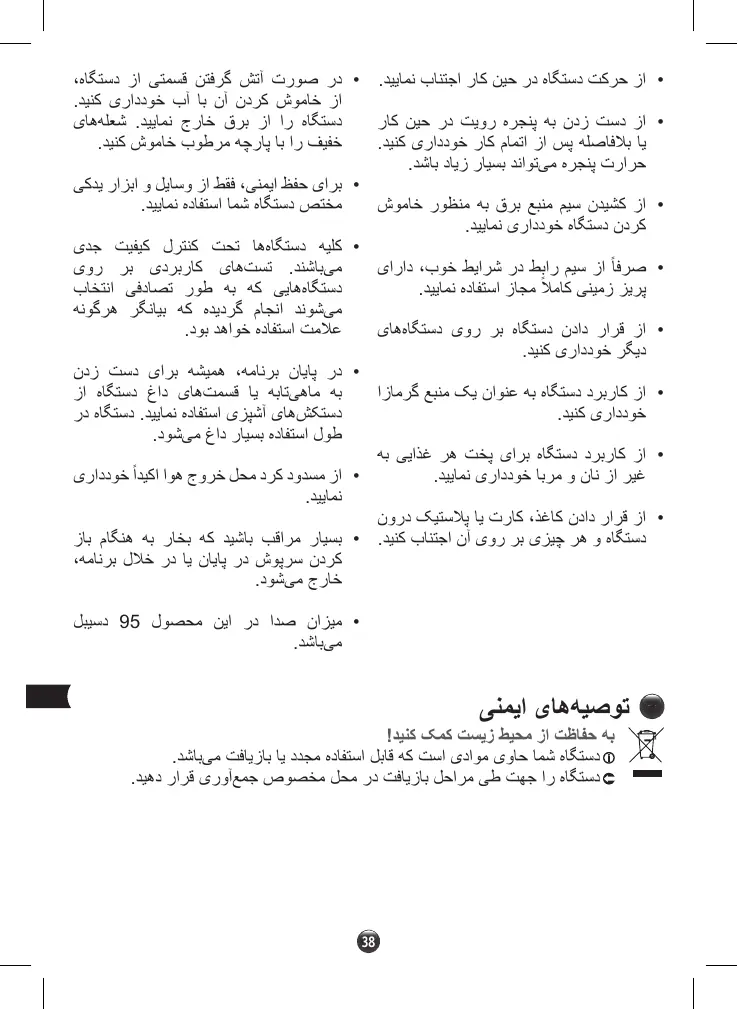 • از حرکت دستگاه در حین کار اجتناب نمایید.
• از دست زدن به پنجره رویت در حین کار
یا بلافاصله پس از اتمام کار خودداری کنید.
حرارت پنجره می‌تواند بسیار زیاد باشد.
• از کشیدن سیم منبع برق به منظور خاموش
کردن دستگاه خودداری نمایید.
• صرفاً از سیم رابط در شرایط خوب، دارای
پریز زمینی کاملاً مجاز استفاده نمایید.
• از قرار دادن دستگاه بر روی دستگاه‌های
دیگر خودداری کنید.
• از کاربرد دستگاه به عنوان یک منبع گرمازا
خودداری کنید.
• از کاربرد دستگاه برای پخت هر غذایی به
غیر از نان و مربا خودداری نمایید.
• از قرار دادن کاغذ، کارت یا پلاستیک درون
دستگاه و هر چیزی بر روی آن اجتناب کنید.
• در صورت آتش گرفتن قسمتی از دستگاه،
از خاموش کردن آن با آب خودداری کنید.
دستگاه را از برق خارج نمایید. شعله‌های
خفیف را با پارچه مرطوب خاموش کنید.
• برای حفظ ایمنی، فقط از وسایل و ابزار یدکی
مختص دستگاه شما استفاده نمایید.
• کلیه دستگاه‌ها تحت کنترل کیفیت جدی
می‌باشند. تست‌های کاربردی بر روی
دستگاه‌هایی که به طور تصادفی انتخاب
می‌شوند انجام گردیده که بیانگر هرگونه
علامت استفاده خواهد بود.
• در پایان برنامه، همیشه برای دست زدن
به ماهی‌تابه یا قسمت‌های داغ دستگاه از
دستکش‌های آشپزی استفاده نمایید. دستگاه در
طول استفاده بسیار داغ می‌شود.
• از مسدود کرد محل خروج هوا اکیداً خودداری
نمایید.
• بسیار مراقب باشید که بخار به هنگام باز
کردن سرپوش در پایان یا در خلال برنامه،
خارج می‌شود.
• میزان صدا در این محصول 95 دسیبل
می‌باشد.
توصیه‌های ایمنی
به حفاظت از محیط زیست کمک کنید!
دستگاه شما حاوی موادی است که قابل استفاده مجدد یا بازیافت می‌باشد.
دستگاه را جهت طی مراحل بازیافت در محل مخصوص جمع‌آوری قرار دهید.
38